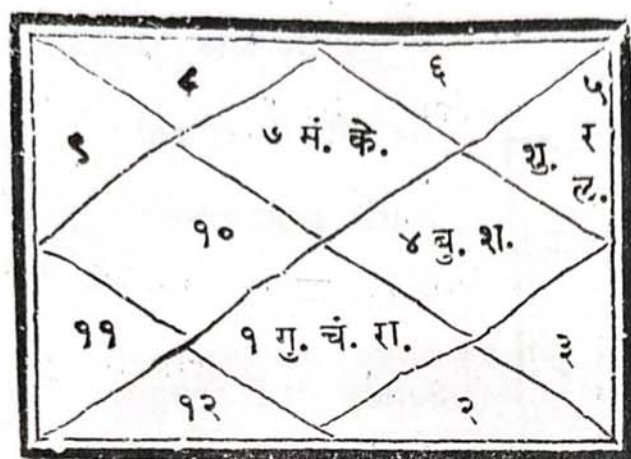 ८
६
५
९
७ मं. के.
शु. र
ल.
१०
४ बु. श.
११
१ गु. चं. रा.
३
१२
२